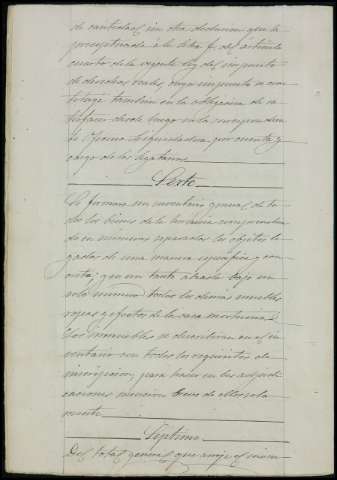 de cantidades, sin otra deduccion que la
preceptuada a la letra f. del articulo
cuarto de la vigente ley del impuesto
de derechos reales, cuyo impuesto se con
tambien en la obligacion de sa
tisfacer desde luego en la correspondien
te Oficina liquidadora, por cuenta y
cargo de los legatarios.
Sexto
Se formara un inventario general de to
dos los bienes de la herencia comprendien
do en numeros separados los objetos le
gados de una manera especifica y con
creta; y en un tanto alzado bajo un
solo numero todos los demas muebles,
ropas y efectos de la casa mortuoria.
Los inmuebles se describiran en el in
ventario con todos los requisitos de
inscripcion, para hacer en las adjudi
caciones mencion de ellos sola
mente.
Septimo
Del total general que arroje el inven